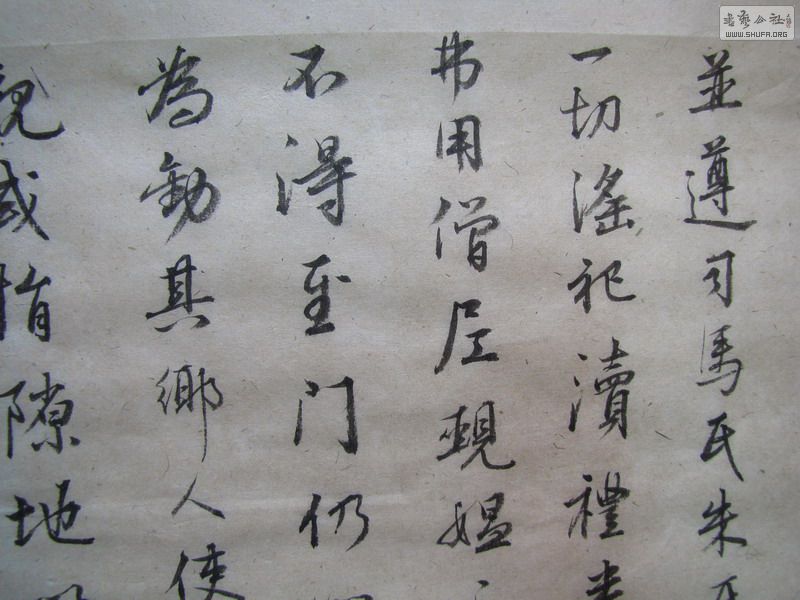 並遵司馬氏朱氏
一切滛祀瀆禮
弗用僧尼覡媪
不得至门仍
為勸其鄉人使
親或捐隙地
書藝公社
WWW.SHUFA.ORG